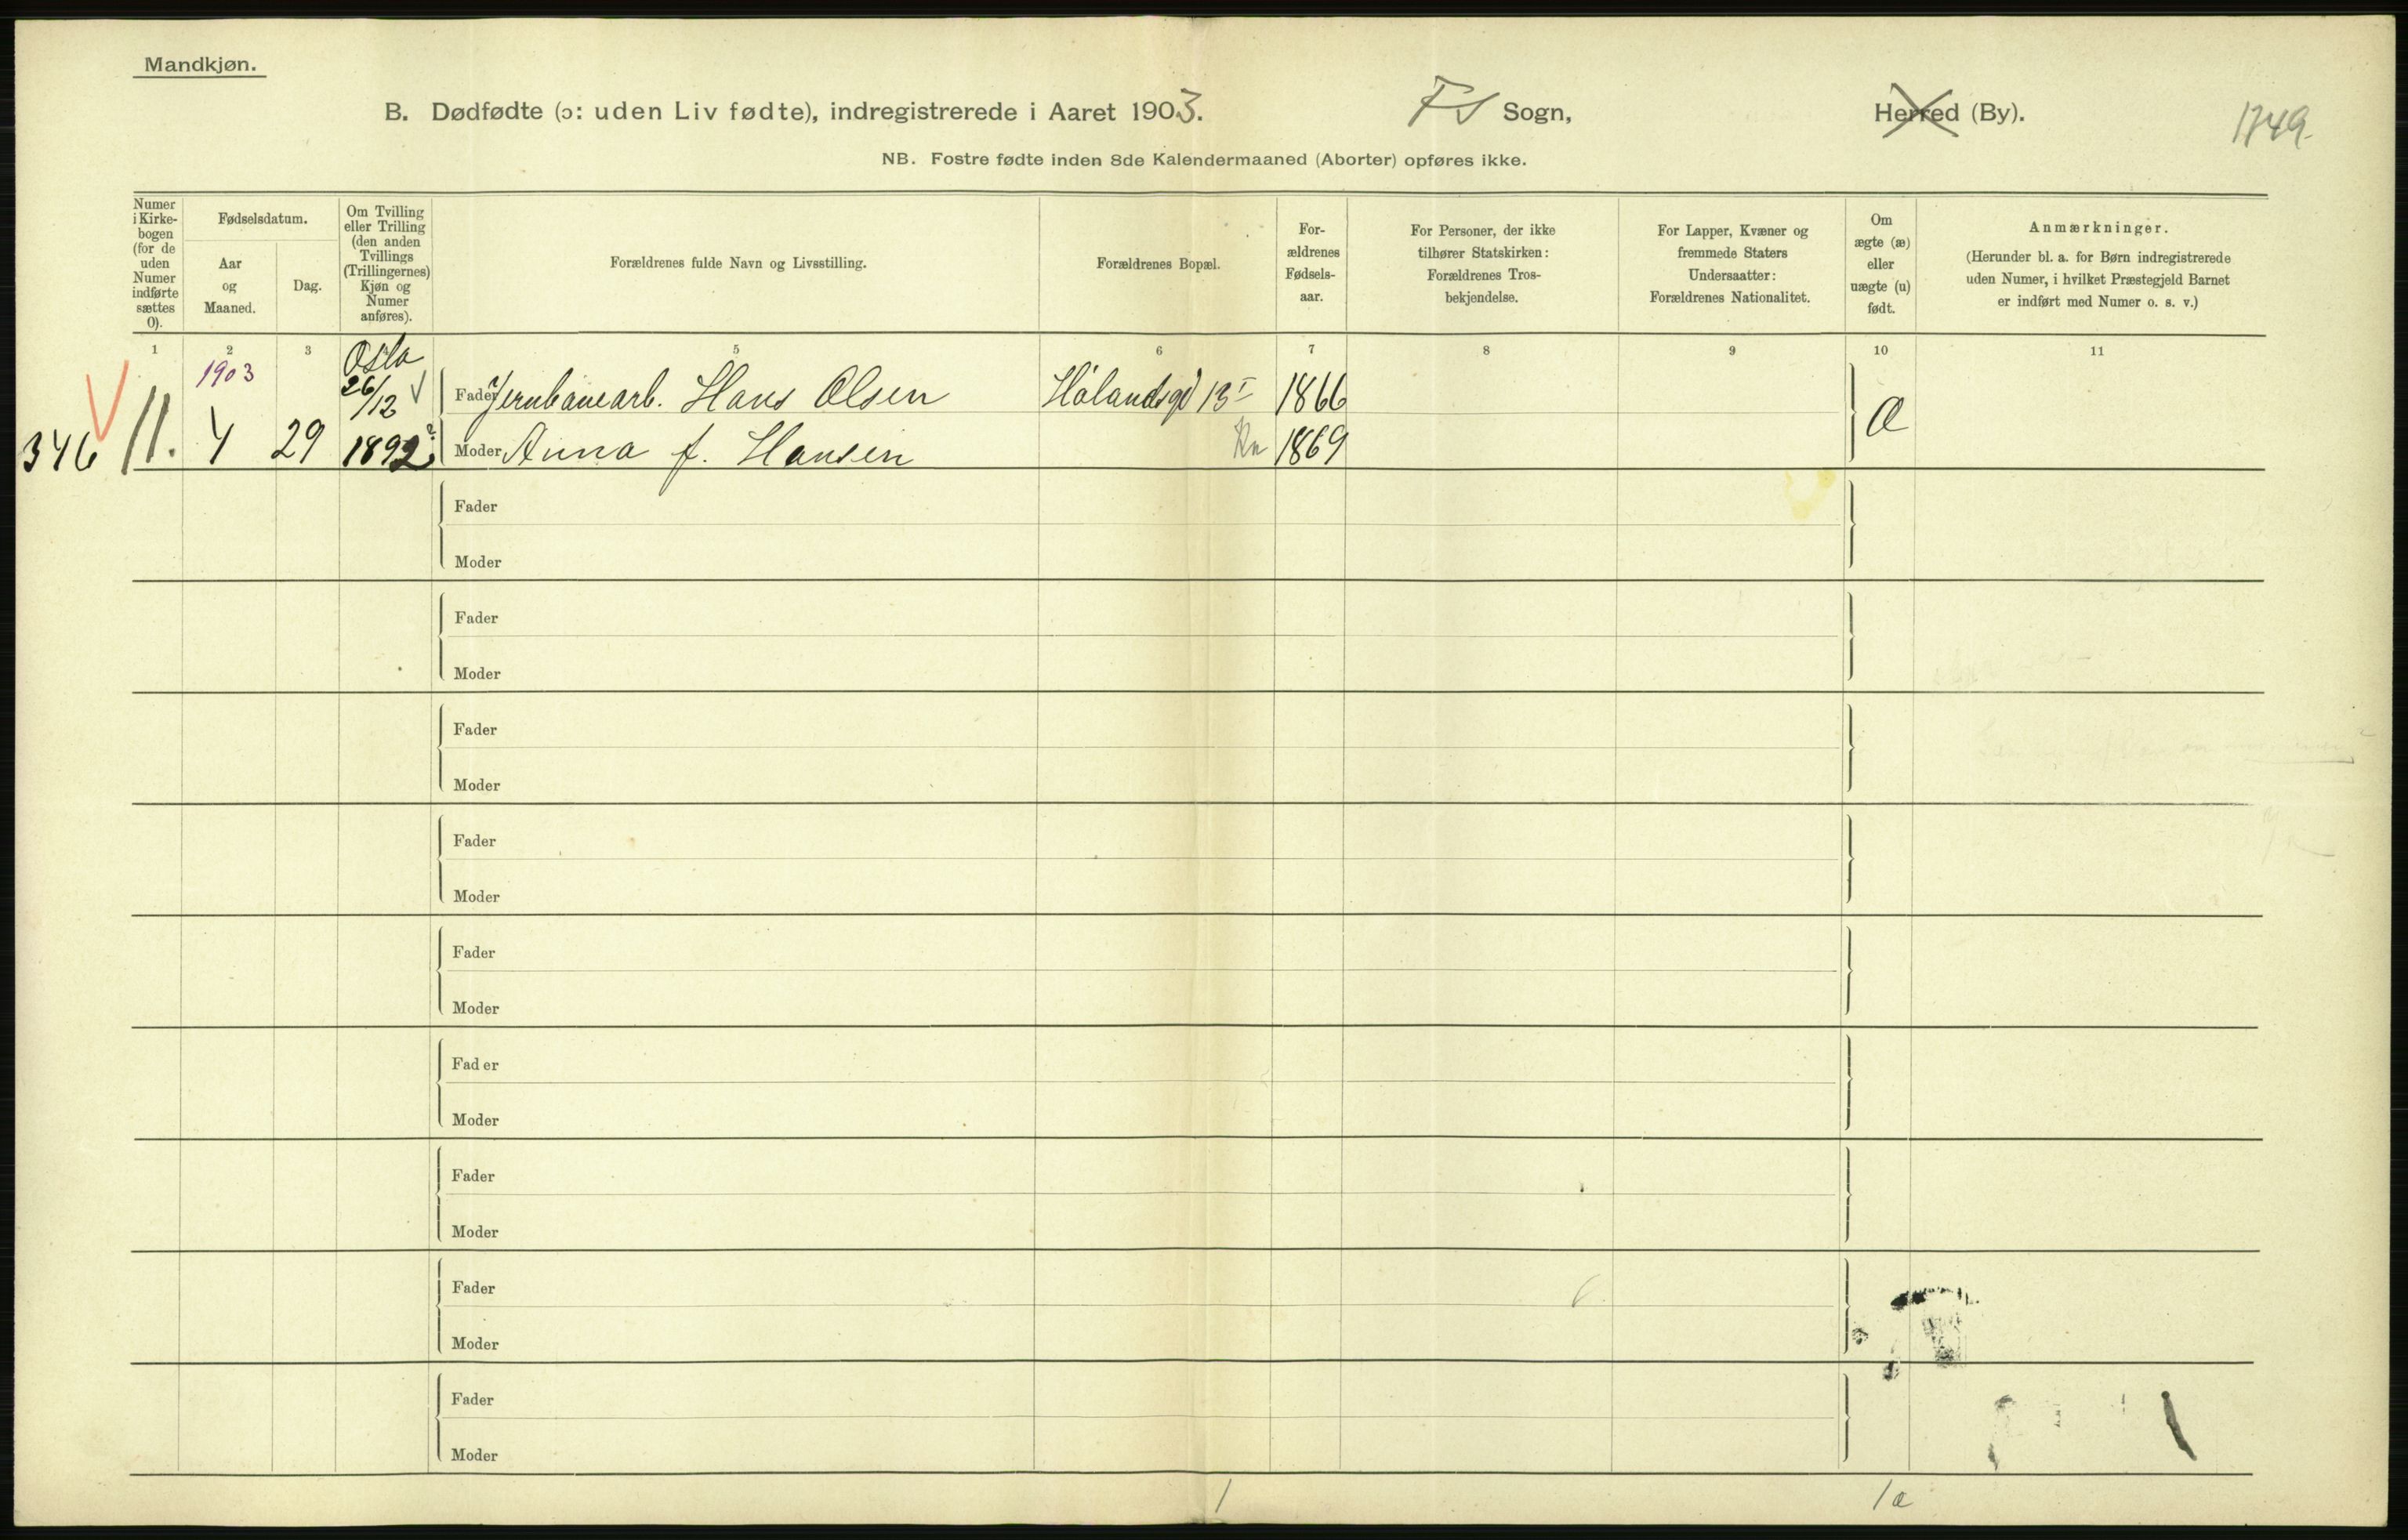 Mandkjøn.
B. Dødfødte (ɔ: uden Liv fødte), indregistrerede i Aaret 1903. Sogn, Herred (By). 1749.
NB. Fostre fødte inden 8de Kalendermaaned (Aborter) opføres ikke.
Numer i Kirke-bogen (for de uden Numer indførte sættes 0).
Fødselsdatum.
Aar og Maaned.
Dag.
Om Tvilling eller Trilling (den anden Tvillings (Trillingernes) Kjøn og Numer anføres).
Forældrenes fulde Navn og Livsstilling.
Forældrenes Bopæl.
For-ældrenes Fødsels-aar.
For Personer, der ikke tilhører Statskirken: Forældrenes Tros-bekjendelse.
For Lapper, Kvæner og fremmede Staters Undersaatter: Forældrenes Nationalitet.
Om ægte (æ) eller uægte (u) født.
Anmærkninger.
(Herunder bl. a. for Børn indregistrerede uden Numer, i hvilket Præstegjeld Barnet er indført med Numer o. s. v.)
1 2 3 5 6 7 8 9 10 11
1903 Oslo
26/12 Fader Jernbanearb. Hans Olsen Hølandsgd 13 I 1866
346 11. 4 29 1892 Moder Anna f. Hansen 1869 æ
Fader
Moder
Fader
Moder
Fader
Moder
Fader
Moder
Fader
Moder
Fader
Moder
Fader
Moder
Fader
Moder
Fader
Moder
1 1æ